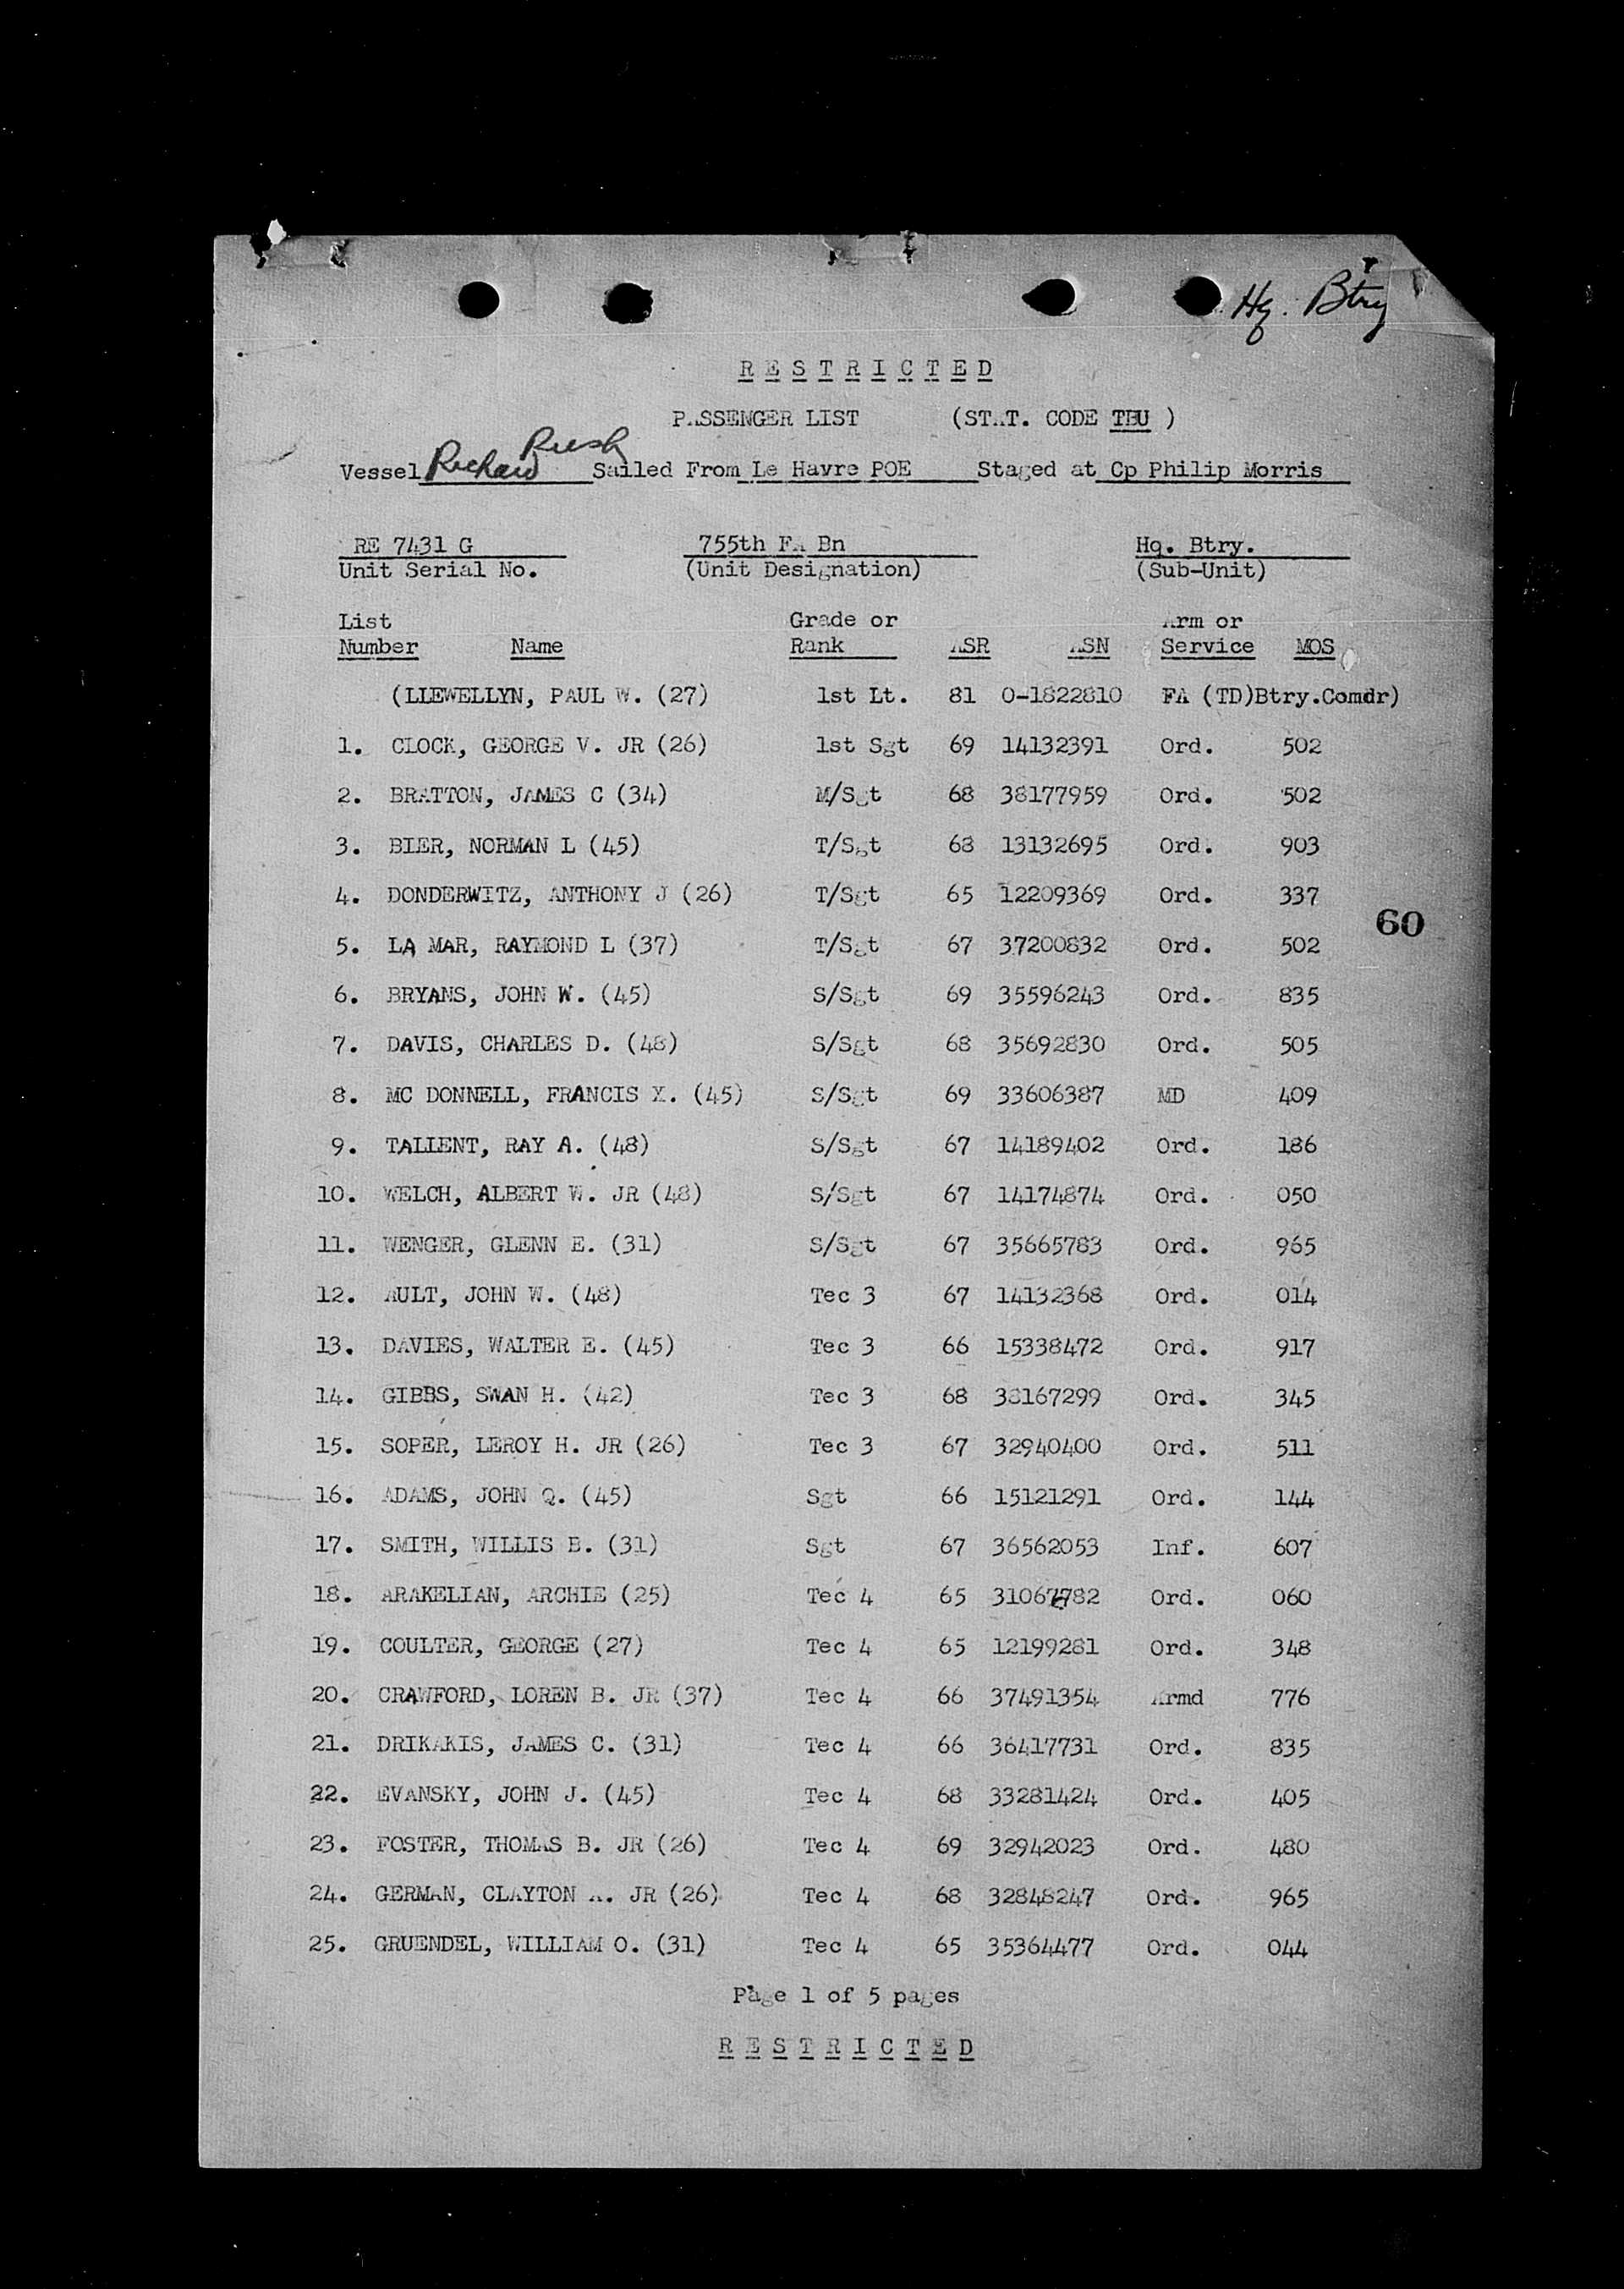 Hq. Btry
R E S T R I C T E D
PASSENGER LIST (STAT. CODE TBU )
Vessel Richard Rush Sailed From Le Havre POE Staged at Cp Philip Morris
RE 7431 G 755th FA Bn Hq. Btry.
Unit Serial No. (Unit Designation) (Sub-Unit)
List Grade or Arm or
Number Name Rank ASR ASN Service MOS
(LLEWELLYN, PAUL W. (27) 1st Lt. 81 O-1822810 FA (TD)Btry.Comdr)
1. CLOCK, GEORGE V. JR (26) 1st Sgt 69 14132391 Ord. 502
2. BRATTON, JAMES C (34) M/Sgt 68 38177959 Ord. 502
3. BIER, NORMAN L (45) T/Sgt 68 13132695 Ord. 903
4. DONDERWITZ, ANTHONY J (26) T/Sgt 65 12209369 Ord. 337
60
5. LA MAR, RAYMOND L (37) T/Sgt 67 37200832 Ord. 502
6. BRYANS, JOHN W. (45) S/Sgt 69 35596243 Ord. 835
7. DAVIS, CHARLES D. (48) S/Sgt 68 35692830 Ord. 505
8. MC DONNELL, FRANCIS X. (45) S/Sgt 69 33606387 MD 409
9. TALLENT, RAY A. (48) S/Sgt 67 14189402 Ord. 186
10. WELCH, ALBERT W. JR (48) S/Sgt 67 14174874 Ord. 050
11. WENGER, GLENN E. (31) S/Sgt 67 35665783 Ord. 965
12. AULT, JOHN W. (48) Tec 3 67 14132368 Ord. 014
13. DAVIES, WALTER E. (45) Tec 3 66 15338472 Ord. 917
14. GIBBS, SWAN H. (42) Tec 3 68 38167299 Ord. 345
15. SOPER, LEROY H. JR (26) Tec 3 67 32940400 Ord. 511
16. ADAMS, JOHN Q. (45) Sgt 66 15121291 Ord. 144
17. SMITH, WILLIS B. (31) Sgt 67 36562053 Inf. 607
18. ARAKELIAN, ARCHIE (25) Tec 4 65 Ord. 060
19. COULTER, GEORGE (27) Tec 4 65 12199281 Ord. 348
20. CRAWFORD, LOREN B. JR (37) Tec 4 66 37491354 Armd 776
21. DRIKAKIS, JAMES C. (31) Tec 4 66 36417731 Ord. 835
22. EVANSKY, JOHN J. (45) Tec 4 68 33281424 Ord. 405
23. FOSTER, THOMAS B. JR (26) Tec 4 69 32942023 Ord. 480
24. GERMAN, CLAYTON A. JR (26) Tec 4 68 32848247 Ord. 965
25. GRUENDEL, WILLIAM O. (31) Tec 4 65 35364477 Ord. 044
Page 1 of 5 pages
R E S T R I C T E D